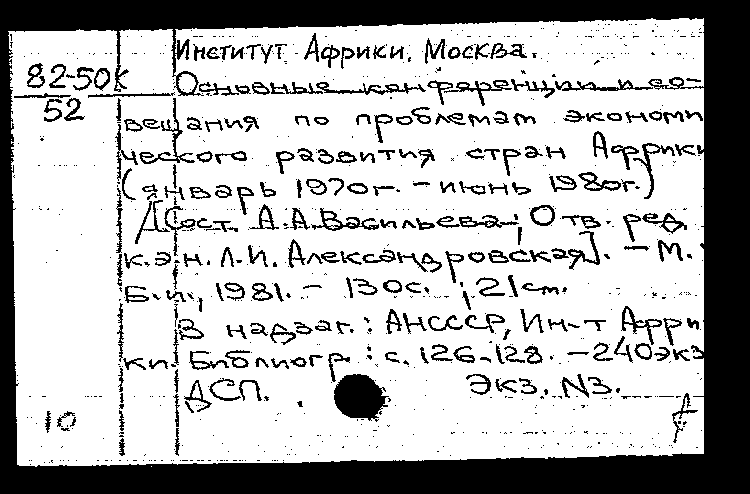 Институт Африки. Москва.
82-50К
52
Основные конференции и со-
вещания по проблемам экономи
ческого развития стран Африки
(январь 1970г. - июнь 1980г.)
[Сост. А.А.Васильева; Отв. ред.
к.э.н. Л.И. Александровская]. - М.:
Б.и., 1981. - 130с. ; 21см.
В надзаг.: АНСССР, Ин-т Афри
ки. Библиогр.: с. 126-128. - 240экз
ДСП. Экз. N3.
10